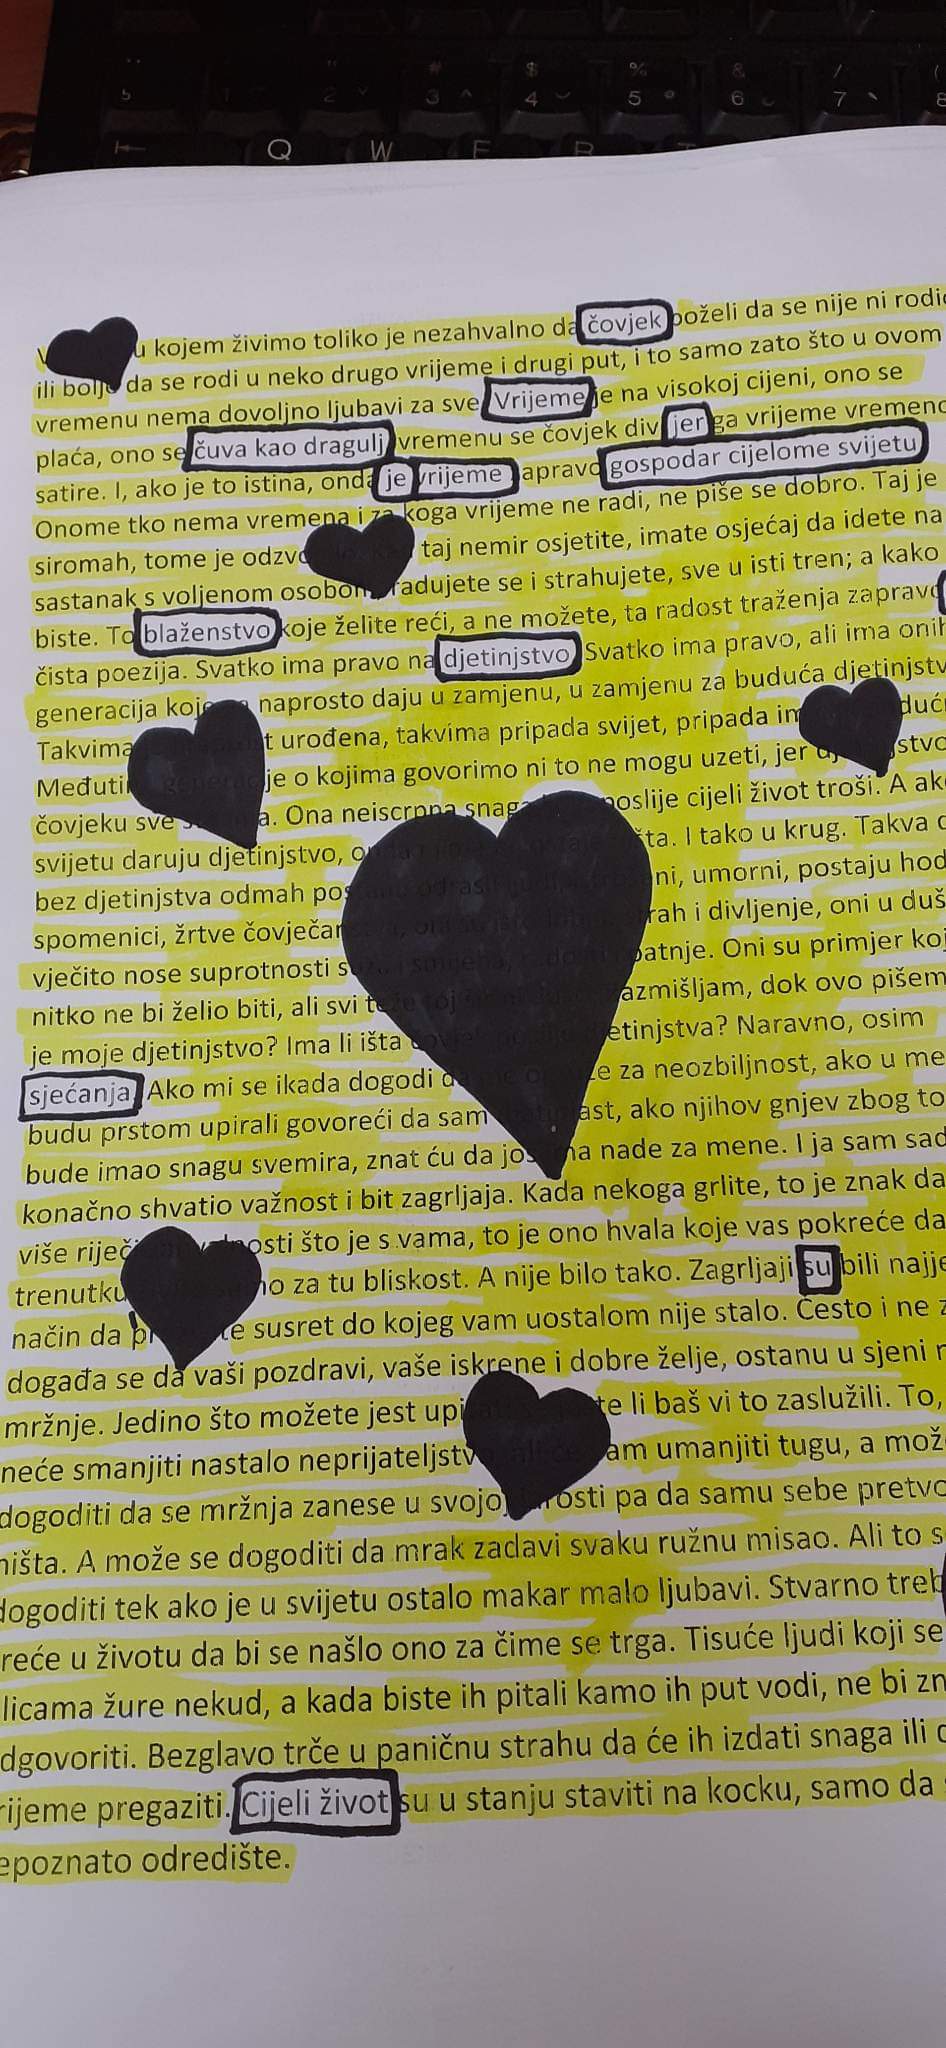 5 1 2 3 4 5 6 7 8
Q W E R T
u kojem živimo toliko je nezahvalno da čovjek poželi da se nije ni
ili bolje da se rodi u neko drugo vrijeme i drugi put, i to samo zato što u ovom
vremenu nema dovoljno ljubavi za sve Vrijeme je na visokoj cijeni, ono se
plaća, ono se čuva kao dragulj vremenu se čovjek div jer ga vrijeme
satire. I, ako je to istina, onda je vrijeme zapravo gospodar cijelome svijetu
Onome tko nema vremena i za koga vrijeme ne radi, ne piše se dobro. Taj je
siromah, tome je taj nemir osjetite, imate osjećaj da idete na
sastanak s voljenom osobom, radujete se i strahujete, sve u isti tren; a kako
biste. To blaženstvo koje želite reći, a ne možete, ta radost traženja zapravo
čista poezija. Svatko ima pravo na djetinjstvo Svatko ima pravo, ali ima
generacija naprosto daju u zamjenu, u zamjenu za buduća
Takvima urođena, takvima pripada svijet, pripada
generacije o kojima govorimo ni to ne mogu uzeti, jer
čovjeku sve Ona neiscrpna snaga poslije cijeli život troši. A
svijetu daruju djetinjstvo, I tako u krug. Takva
bez djetinjstva odmah umorni, postaju
spomenici, žrtve čovječanstva, strah i divljenje, oni u
vječito nose suprotnosti patnje. Oni su primjer
nitko ne bi želio biti, ali svi razmišljam, dok ovo pišem
je moje djetinjstvo? Ima li išta djetinjstva? Naravno, osim
sjećanja Ako mi se ikada dogodi da za neozbiljnost, ako u
budu prstom upirali govoreći da sam ako njihov gnjev zbog
bude imao snagu svemira, znat ću da još ima nade za mene. I ja sam
konačno shvatio važnost i bit zagrljaja. Kada nekoga grlite, to je znak da
više što je s vama, to je ono hvala koje vas pokreće da
trenutku za tu bliskost. A nije bilo tako. Zagrljaji su bili
način da susret do kojeg vam uostalom nije stalo. Često i ne
događa se da vaši pozdravi, vaše iskrene i dobre želje, ostanu u sjeni
mržnje. Jedino što možete jest li baš vi to zaslužili. To,
neće smanjiti nastalo neprijateljstvo vam umanjiti tugu, a
dogoditi da se mržnja zanese u svojoj jarosti pa da samu sebe
ništa. A može se dogoditi da mrak zadavi svaku ružnu misao. Ali to
dogoditi tek ako je u svijetu ostalo makar malo ljubavi. Stvarno
u životu da bi se našlo ono za čime se trga. Tisuće ljudi koji se
žure nekud, a kada biste ih pitali kamo ih put vodi, ne bi
Bezglavo trče u paničnu strahu da će ih izdati snaga ili
pregaziti. Cijeli život su u stanju staviti na kocku, samo da
odredište.